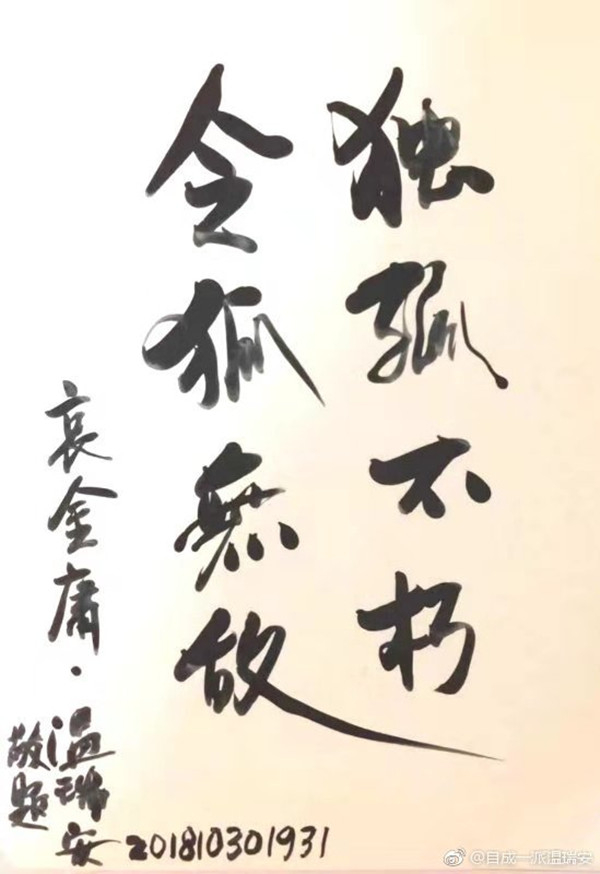 独孤不朽
令狐無故
哀金庸·
温瑞安
敬题
201810301931
@自成一派温瑞安